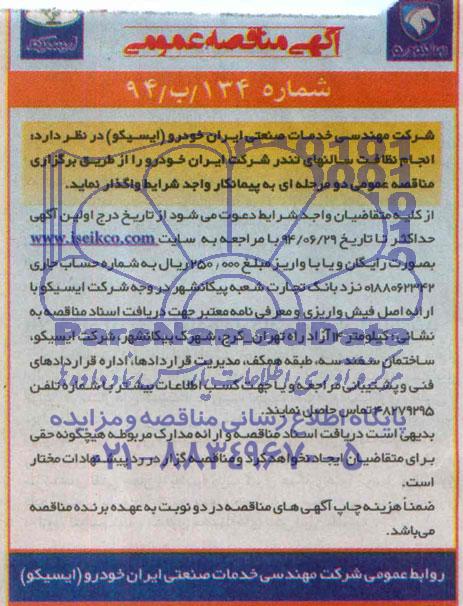 آگهی مناقصه عمومی
شماره ۱۳۴/ب/۹۴
شرکت مهندسی خدمات صنعتی ایران خودرو (ایسیکو) در نظر دارد؛
انجام نظافت سالنهای تندر شرکت ایران خودرو را از طریق برگزاری
مناقصه عمومی دو مرحله ای به پیمانکار واجد شرایط واگذار نماید.
از کلیه متقاضیان واجد شرایط دعوت می شود از تاریخ درج اولین آگهی
حداکثر تا تاریخ ۹۴/۰۶/۲۹ با مراجعه به سایت www.iseikco.com
بصورت رایگان و یا با واریز مبلغ ۲۵۰٫۰۰۰ ریال به شماره حساب جاری
۰۱۸۸۰۶۲۳۴۲ نزد بانک تجارت شعبه پیکانشهر در وجه شرکت ایسیکو با
ارائه اصل فیش واریزی و معرفی نامه معتبر جهت دریافت اسناد مناقصه به
نشانی: کیلومتر ۱۴ آزاد راه تهران ـ کرج، شهرک پیکانشهر، شرکت ایسیکو،
ساختمان سمند سه، طبقه همکف، مدیریت قراردادها، اداره قراردادهای
فنی و پشتیبانی مراجعه و یا جهت کسب اطلاعات بیشتر با شماره تلفن
۴۸۲۷۹۲۹۵ تماس حاصل نمایند.
بدیهی است دریافت اسناد مناقصه و ارائه مدارک مربوطه هیچگونه حقی
برای متقاضیان ایجاد نخواهد کرد و مناقصه گزار در رد پیشنهادات مختار
است.
ضمناً هزینه چاپ آگهی های مناقصه در دو نوبت به عهده برنده مناقصه
می باشد.
روابط عمومی شرکت مهندسی خدمات صنعتی ایران خودرو (ایسیکو)
ParsNamadData
مرکز فرآوری اطلاعات پارس نماد داده ها
پایگاه اطلاع رسانی مناقصه و مزایده
۰۲۱-۸۸۳۴۹۶۷۰-۵